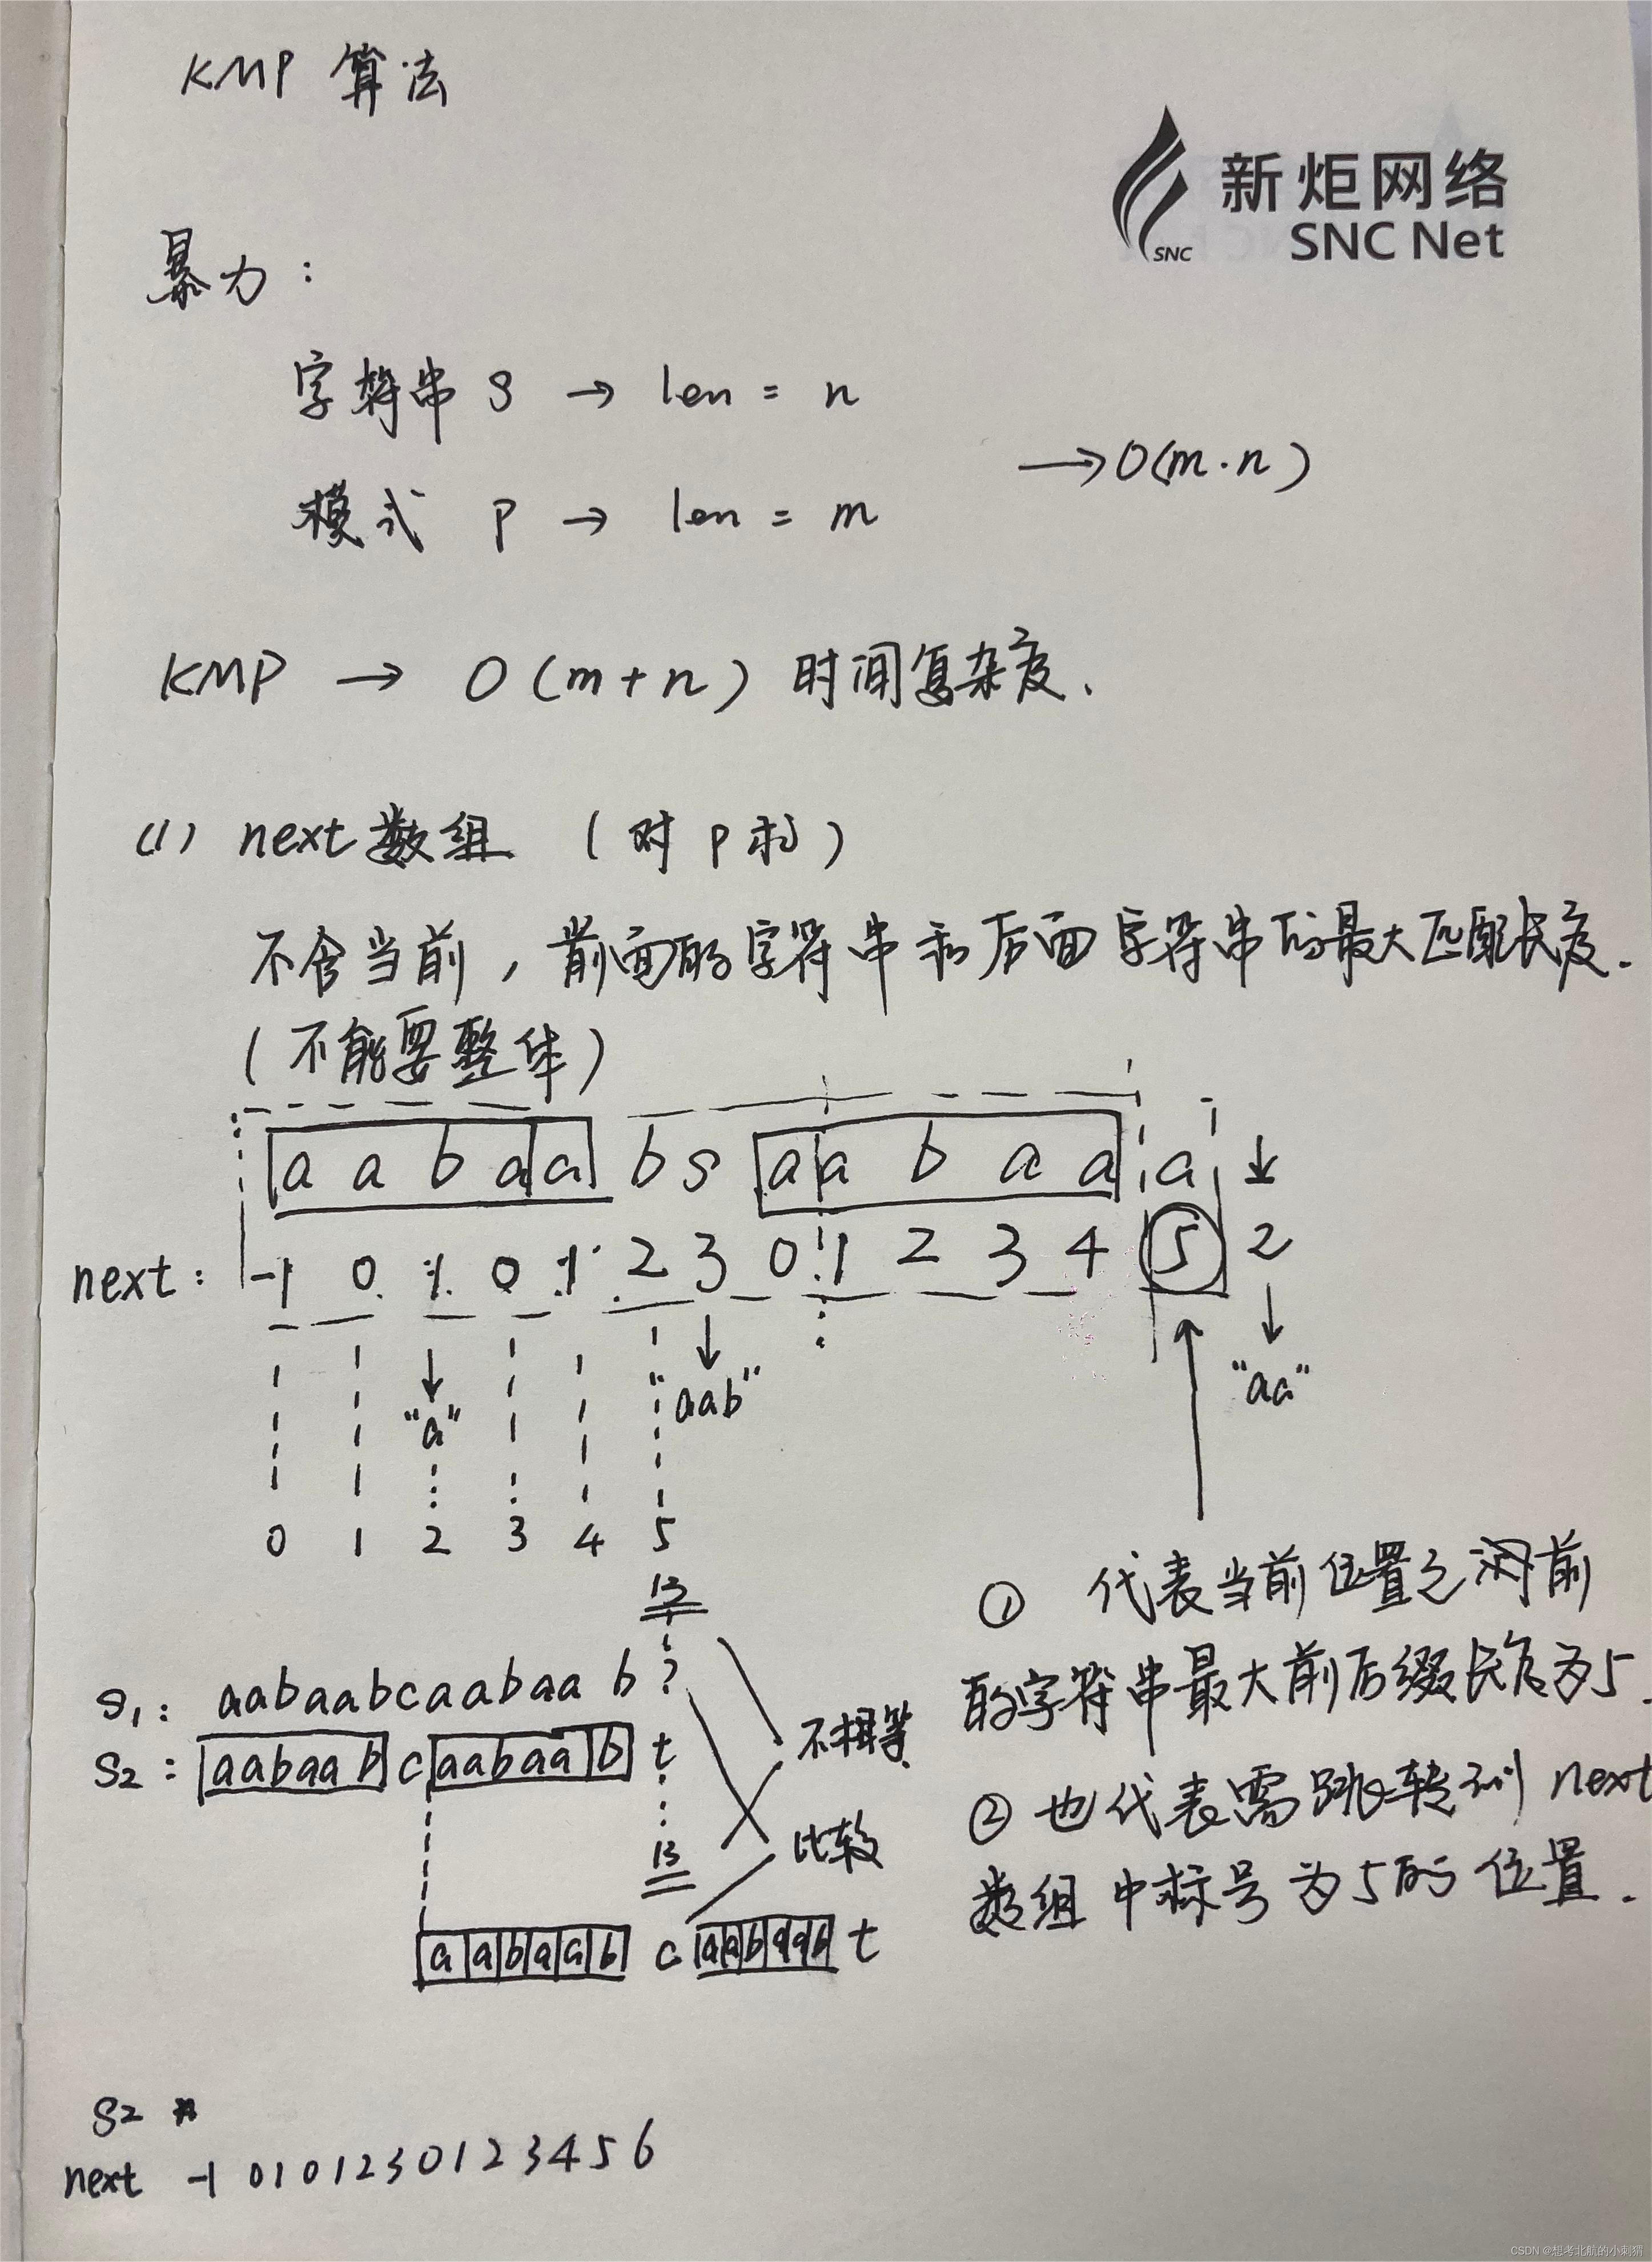 KMP 算法
新炬网络
SNC
SNC Net
暴力：
字符串 S → len = n
→ O(m·n)
模式 P → len = m
KMP → O(m+n) 时间复杂度.
(1) next数组 (对 P 求)
不含当前, 前面的字符串和后面字符串的最大匹配长度.
(不能要整体)
a a b a a b s a a b a a a ↓
next: -1 0 1 0 1 2 3 0 1 2 3 4 5 2
↓ "a" ↓ "aab" ↓ "aa"
0 1 2 3 4 5
13
S1: aabaabcaabaab?
S2: aabaabcaabaabt
不相等
比较
13
aabaabcaabaabt
① 代表当前位置之前
的字符串最大前后缀长度为5.
② 也代表需跳转到 next
数组中标号为5的位置.
S2
next -1 0 1 0 1 2 3 0 1 2 3 4 5 6
CSDN @想考北航的小刺猬